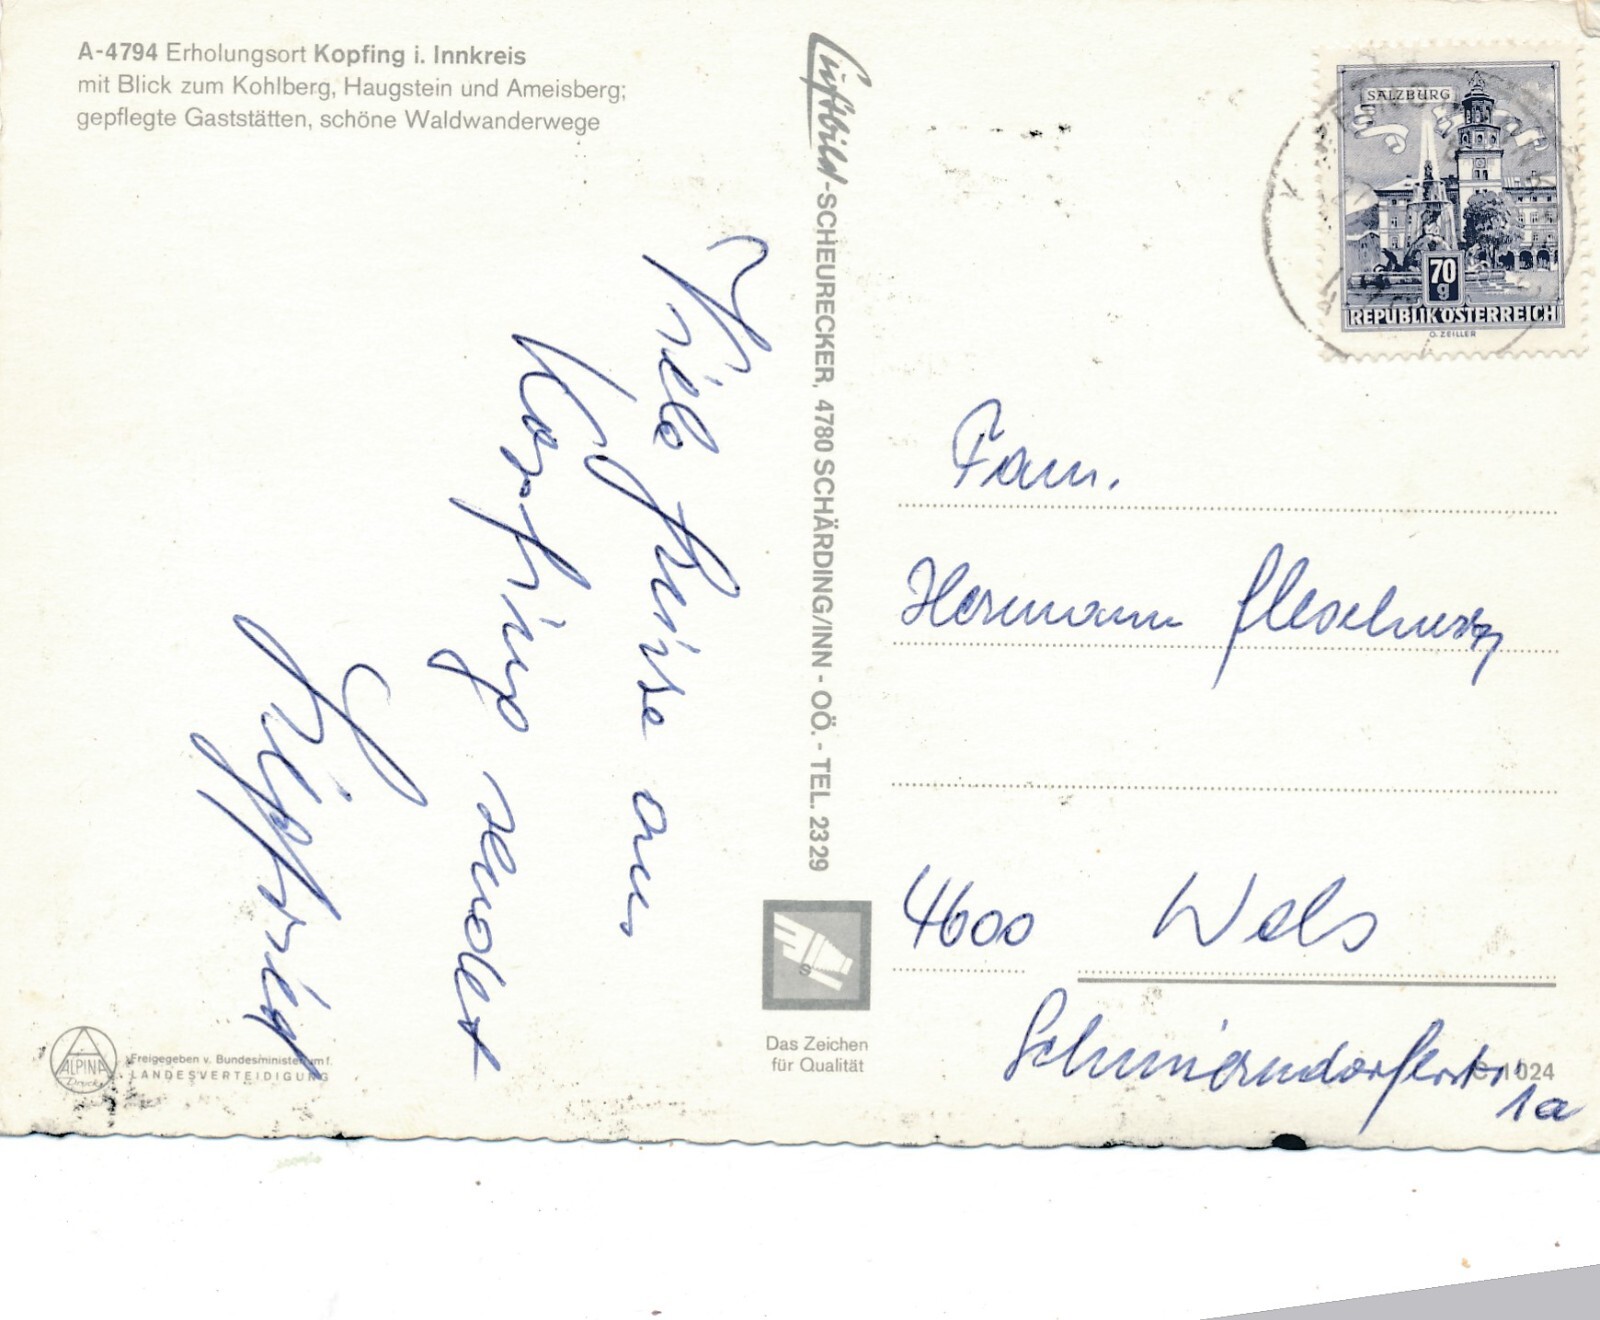 A-4794 Erholungsort Kopfing i. Innkreis
mit Blick zum Kohlberg, Haugstein und Ameisberg;
gepflegte Gaststätten, schöne Waldwanderwege
Viele Grüsse aus
Kopfing sendet
Luftbild-SCHEURECKER, 4780 SCHÄRDING/INN - OÖ. - TEL. 23 29
S
Das Zeichen
für Qualität
ALPINA
Druck
Freigegeben v. Bundesministerium f.
LANDESVERTEIDIGUNG
SALZBURG
70
g
REPUBLIK ÖSTERREICH
O. ZEILLER
Fam.
Hermann
4600 Wels
1a
1024